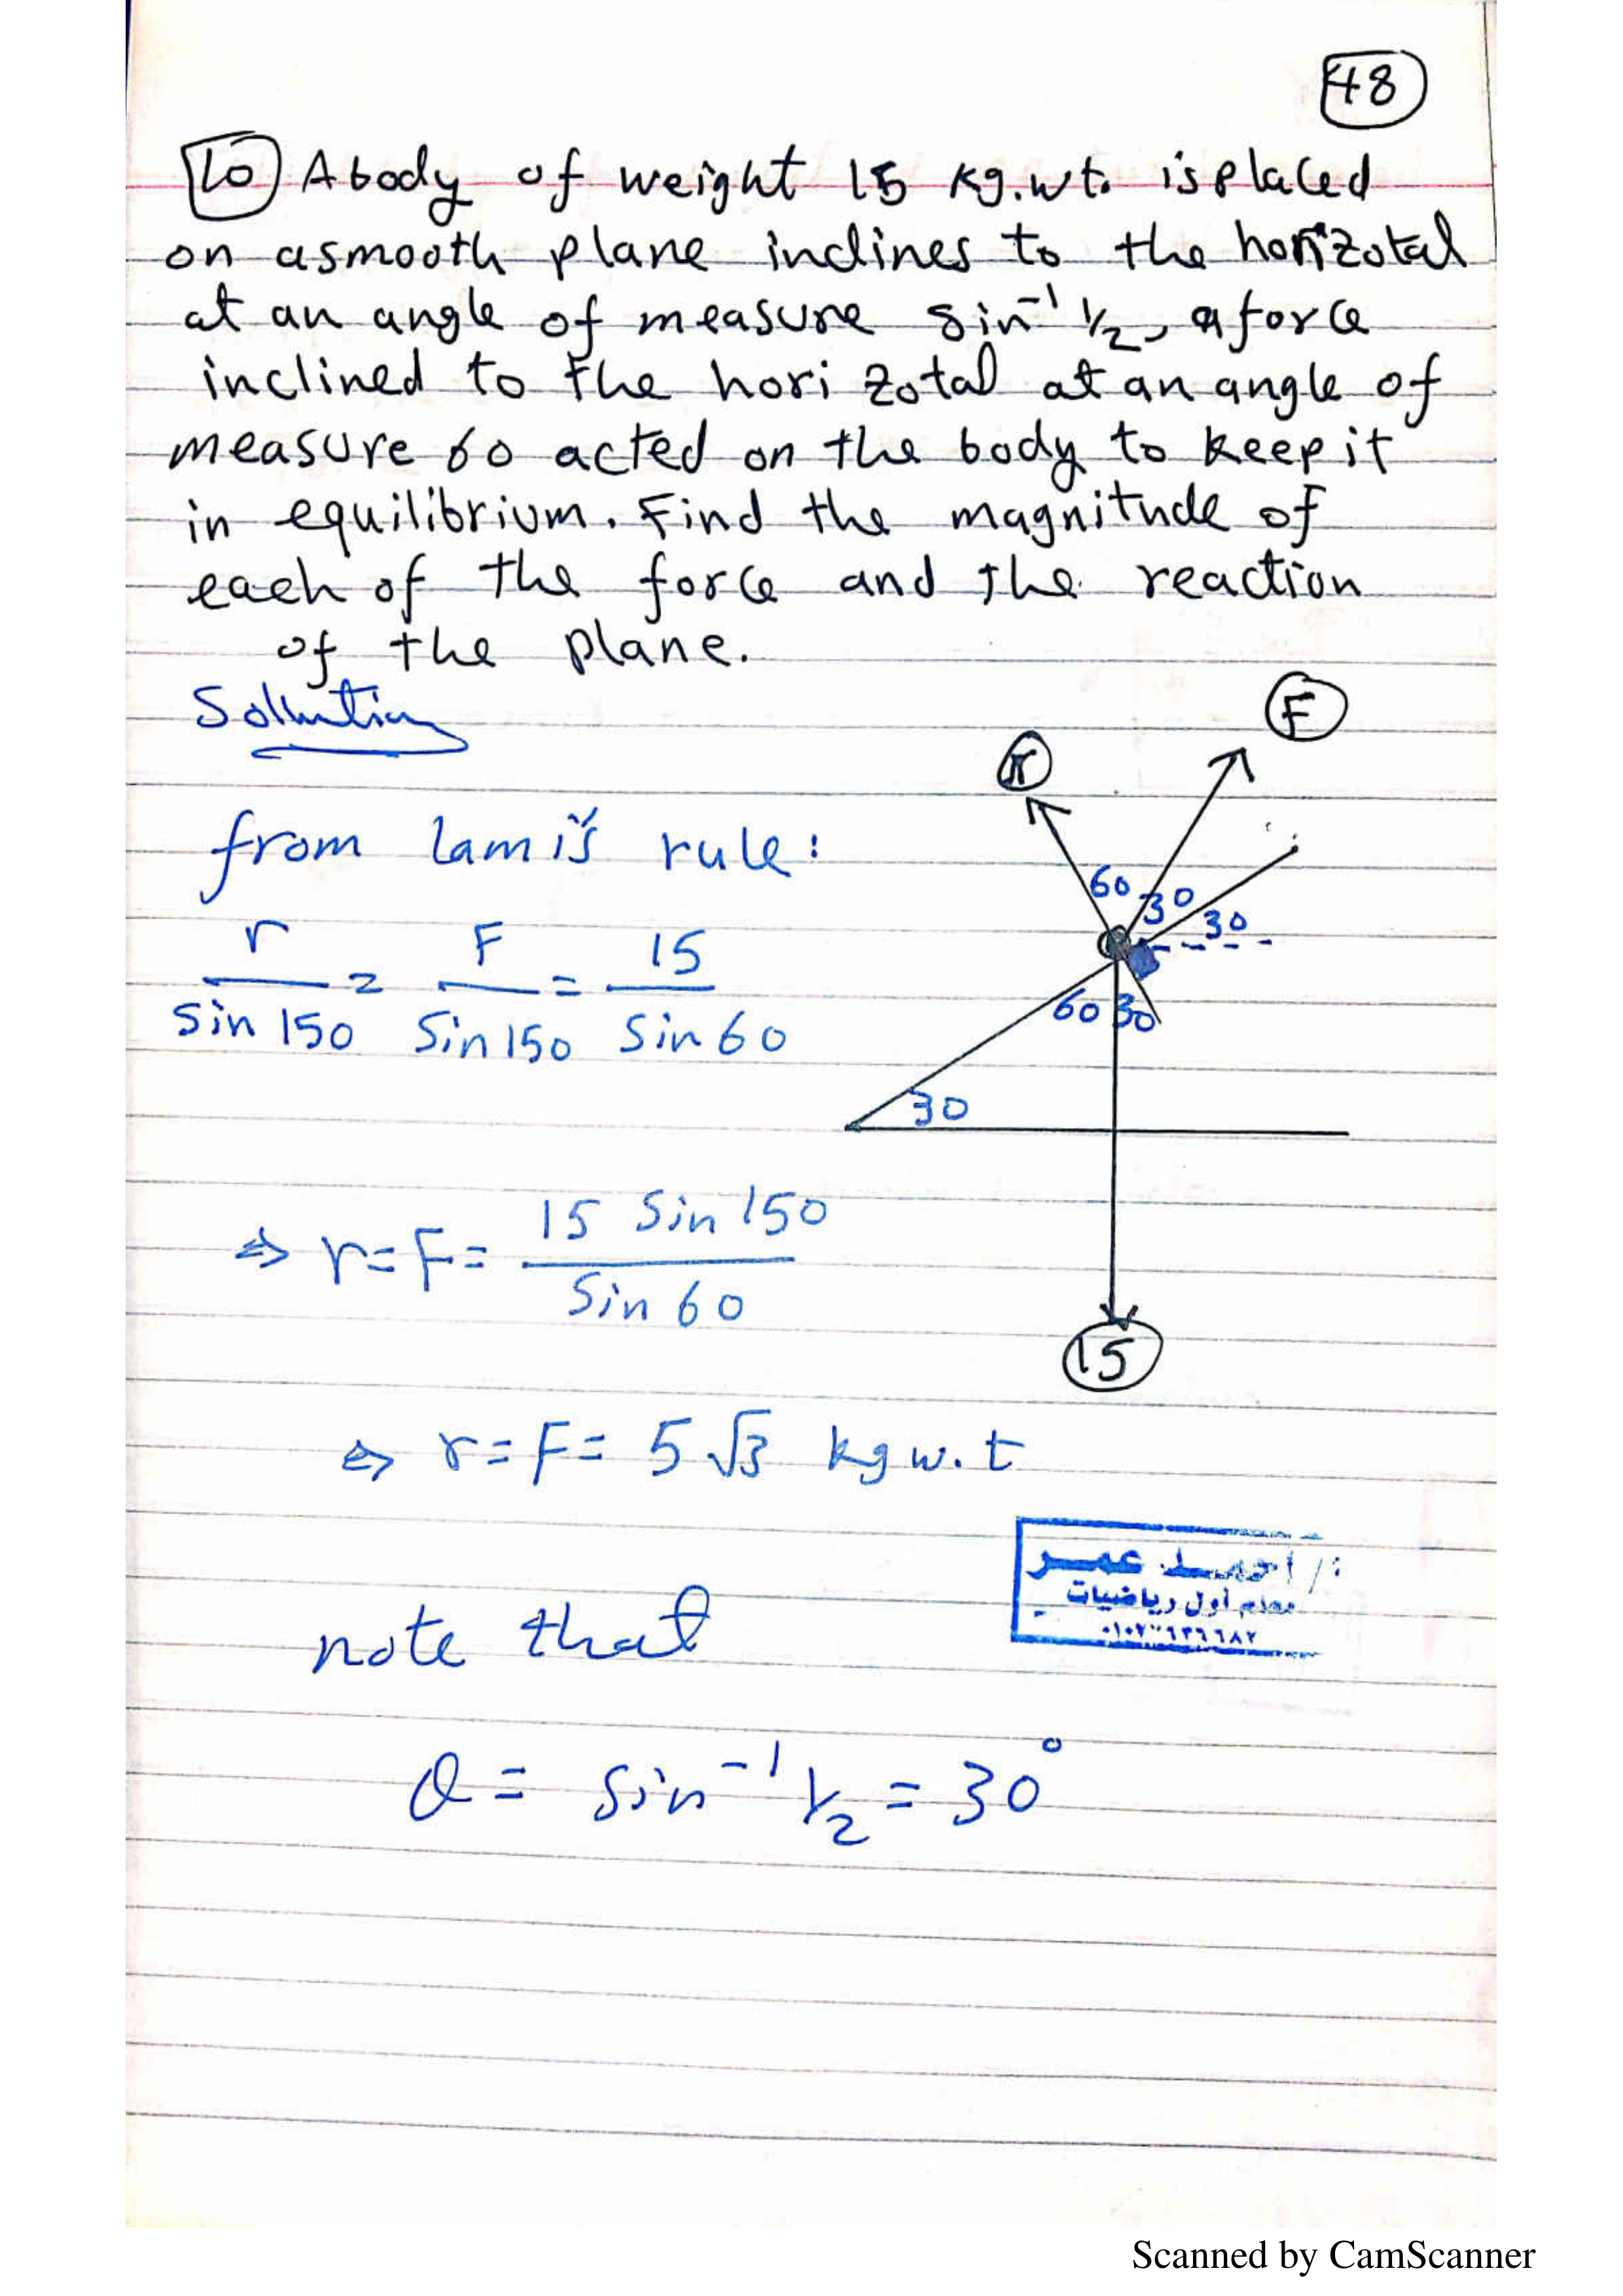 48
10 A body of weight 15 kg.wt. is placed
on a smooth plane inclines to the horizotal
at an angle of measure sin⁻¹ 1/2, a force
inclined to the hori zotal at an angle of
measure 60 acted on the body to keep it
in equilibrium. Find the magnitude of
each of the force and the reaction
of the plane.
Solution
F
r
from lami's rule:
60 30 30
r/sin 150 = F/sin 150 = 15/sin 60
60 30
30
⇒ r = F = 15 sin 150/sin 60
15
⇒ r = F = 5√3 kg w.t
/ احمد عمر
معلم أول رياضيات
note that
θ = sin⁻¹ 1/2 = 30°
Scanned by CamScanner